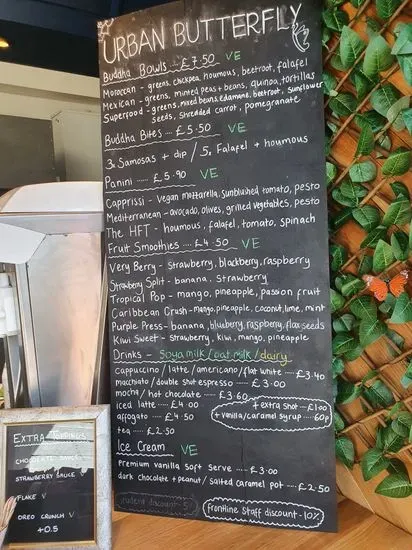 URBAN BUTTERFLY
Buddha Bowls .... £7.50 VE
Moroccan - greens, chickpea, houmous, beetroot, falafel
Mexican - greens, mixed peas + beans, quinoa, tortillas
Superfood - greens, mixed beans, edamame, beetroot, sunflower
seeds, shredded carrot, pomegranate
Buddha Bites .... £5.50 VE
3x Samosas + dip / 5x Falafel + houmous
Panini ..... £5.90 VE
Capprissi - vegan mozzarella, sunblushed tomato, pesto
Mediterranean - avocado, olives, grilled vegetables, pesto
The HFT - houmous, falafel, tomato, spinach
Fruit Smoothies .... £4.50 VE
Very Berry - strawberry, blackberry, raspberry
Strawberry Split - banana, strawberry
Tropical Pop - mango, pineapple, passion fruit
Caribbean Crush - mango, pineapple, coconut, lime, mint
Purple Press - banana, blueberry, raspberry, flax seeds
Kiwi Sweet - strawberry, kiwi, mango, pineapple
Drinks - Soya milk / oat milk / dairy
cappuccino / latte / americano / flat white .... £3.40
macchiato / double shot espresso .... £3.00
mocha / hot chocolate .... £3.60
iced latte .... £4.00
affogato .... £4.50
tea .... £2.50
+ extra shot .... £1.00
+ vanilla/caramel syrup .... 60p
Ice Cream VE
Premium vanilla soft serve .... £3.00
dark chocolate + peanut / salted caramel pot .... £2.50
student discount - 5%
frontline staff discount - 10%
EXTRA TOPPINGS
CHOCOLATE SAUCE
STRAWBERRY SAUCE V
FLAKE V
OREO CRUNCH V
40.5